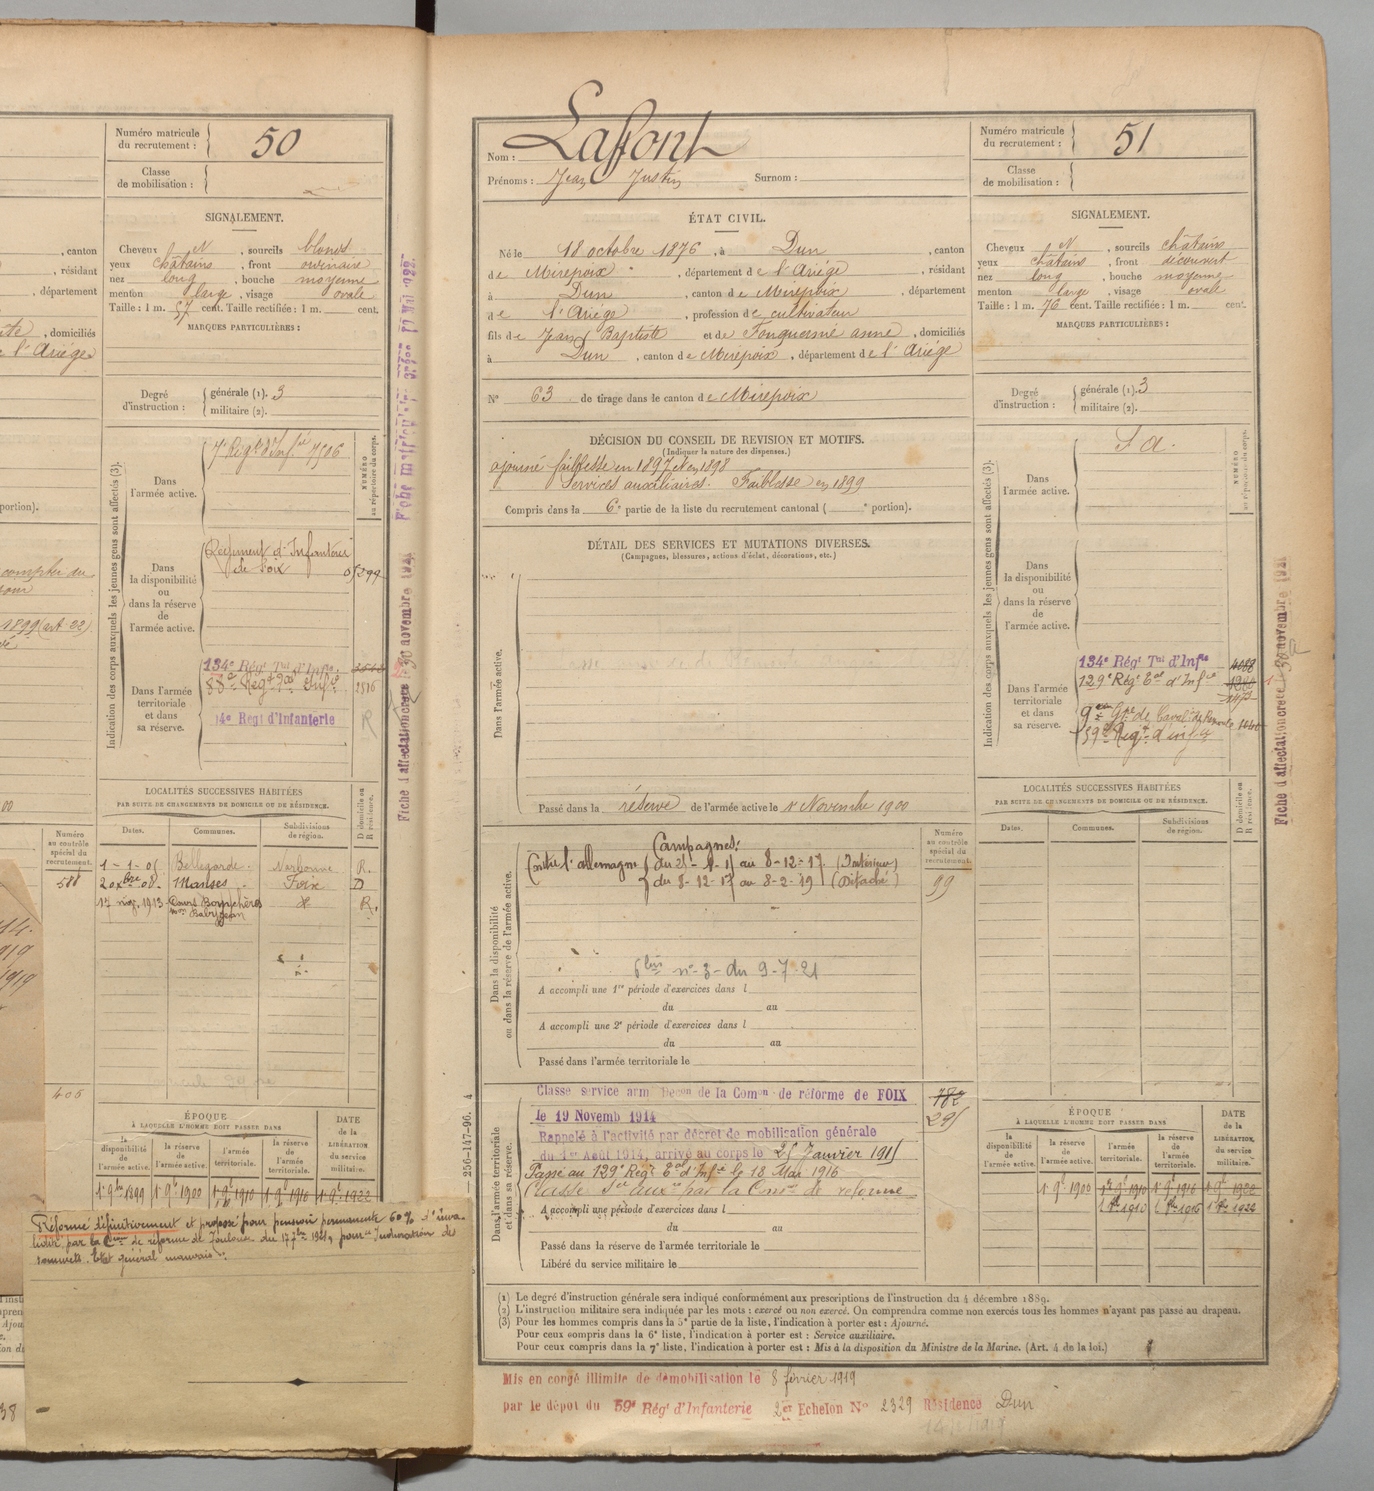 Numéro matricule
du recrutement :
50
Classe
de mobilisation :
SIGNALEMENT.
Cheveux N , sourcils blonds
yeux châtains , front ordinaire
nez long , bouche moyenne
menton large , visage ovale
Taille : 1 m. 57 cent. Taille rectifiée : 1 m. cent.
MARQUES PARTICULIÈRES :
, canton
, résidant
, département
, domiciliés
e l'Ariège
Degré
d'instruction :
générale (1). 3
militaire (2).
Indication des corps auxquels les jeunes gens sont affectés (3).
Dans
l'armée active.
7e Régt d'Infie 7506
NUMÉRO
au répertoire du corps.
Dans
la disponibilité
ou
dans la réserve
de
l'armée active.
Régiment d'Infanterie
de Foix
05299
Dans l'armée
territoriale
et dans
sa réserve.
134e Régt Tal d'Infie
14e Régt d'Infanterie
2516
R
portion).
compter du
1899 (art. 22)
LOCALITÉS SUCCESSIVES HABITÉES
PAR SUITE DE CHANGEMENTS DE DOMICILE OU DE RÉSIDENCE.
Dates. Communes. Subdivisions de région. D domicile ou R résidence.
1-1-05 Bellegarde Narbonne R.
20 xbre 08 Manses Foix D
17 nov. 1913 R.
Numéro
au contrôle
spécial du
recrutement.
588
405
ÉPOQUE
À LAQUELLE L'HOMME DOIT PASSER DANS
la disponibilité de l'armée active.
la réserve de l'armée active.
l'armée territoriale.
la réserve de l'armée territoriale.
DATE de la LIBÉRATION du service militaire.
1er 9bre 1899 1er 9e 1900 1er 9e 1910 1er 9e 1916 1er 9e 1922
Réformé définitivement et proposé pour pension permanente 60% d'inva-
lidité par la Con de réforme de Toulouse du 17 7bre 1921, pour "Induration des
sommets. Etat général mauvais".
Fiche d'affectation créée le 30 novembre 1921
256-147-96. 4
Nom : Lafont
Prénoms : Jean Justin Surnom :
Numéro matricule
du recrutement :
51
Classe
de mobilisation :
ÉTAT CIVIL.
Né le 18 octobre 1876 , à Dun , canton
de Mirepoix , département de l'Ariège , résidant
à Dun , canton de Mirepoix , département
de l'Ariège , profession de cultivateur
fils de Jean Baptiste et de Fouquernié anne , domiciliés
à Dun , canton de Mirepoix , département de l'Ariège
N° 63 de tirage dans le canton de Mirepoix
SIGNALEMENT.
Cheveux N , sourcils châtains
yeux châtains , front découvert
nez long , bouche moyenne
menton large , visage ovale
Taille : 1 m. 76 cent. Taille rectifiée : 1 m. cent.
MARQUES PARTICULIÈRES :
Degré
d'instruction :
générale (1). 3
militaire (2).
DÉCISION DU CONSEIL DE REVISION ET MOTIFS.
(Indiquer la nature des dispenses.)
ajourné faiblesse en 1897 et en 1898
Services auxiliaires. Faiblesse en 1899
Compris dans la 6e partie de la liste du recrutement cantonal ( e portion).
DÉTAIL DES SERVICES ET MUTATIONS DIVERSES.
(Campagnes, blessures, actions d'éclat, décorations, etc.)
Dans l'armée active.
Passé dans la réserve de l'armée active le 1er Novembre 1900
Dans la disponibilité
ou dans la réserve de l'armée active.
Campagnes:
Contre l'allemagne du 25-1-15 au 8-12-17 (Intérieur)
du 8-12-17 au 8-2-19 (Détaché)
Numéro
au contrôle
spécial du
recrutement.
99
6 bis n° 3 du 9-7-21
A accompli une 1re période d'exercices dans l
du au
A accompli une 2e période d'exercices dans l
du au
Passé dans l'armée territoriale le
Dans l'armée territoriale
et dans sa réserve.
Classé service armé Décon de la Comon de réforme de FOIX
le 19 Novemb 1914
Rappelé à l'activité par décret de mobilisation générale
du 1er Août 1914, arrivé au corps le 25 Janvier 1915
Passé au 129e Régt Tal d'Infie le 18 Mai 1916
Classé Sce auxre par la Cmon de réforme
A accompli une période d'exercices dans l
du au
Passé dans la réserve de l'armée territoriale le
Libéré du service militaire le
782
295
Indication des corps auxquels les jeunes gens sont affectés (3).
Dans
l'armée active.
S a.
NUMÉRO
au répertoire du corps.
Dans
la disponibilité
ou
dans la réserve
de
l'armée active.
Dans l'armée
territoriale
et dans
sa réserve.
134e Régt Tal d'Infie
129e Régt Tal d'Infie
59e Régt d'infie
LOCALITÉS SUCCESSIVES HABITÉES
PAR SUITE DE CHANGEMENTS DE DOMICILE OU DE RÉSIDENCE.
Dates. Communes. Subdivisions de région. D domicile ou R résidence.
ÉPOQUE
À LAQUELLE L'HOMME DOIT PASSER DANS
la disponibilité de l'armée active.
la réserve de l'armée active.
l'armée territoriale.
la réserve de l'armée territoriale.
DATE de la LIBÉRATION du service militaire.
1er 9e 1900 1er 9e 1910 1er 9e 1916 1er 9e 1922
1er 8e 1910 1er 8e 1916 1er 8e 1922
Fiche d'affectation créée le 30 novembre 1921
(1) Le degré d'instruction générale sera indiqué conformément aux prescriptions de l'instruction du 4 décembre 1889.
(2) L'instruction militaire sera indiquée par les mots : exercé ou non exercé. On comprendra comme non exercés tous les hommes n'ayant pas passé au drapeau.
(3) Pour les hommes compris dans la 5e partie de la liste, l'indication à porter est : Ajourné.
Pour ceux compris dans la 6e liste, l'indication à porter est : Service auxiliaire.
Pour ceux compris dans la 7e liste, l'indication à porter est : Mis à la disposition du Ministre de la Marine. (Art. 4 de la loi.)
Mis en congé illimité de démobilisation le 8 février 1919
par le dépot du 59e Régt d'Infanterie 2er Echelon N° 2329 Résidence Dun